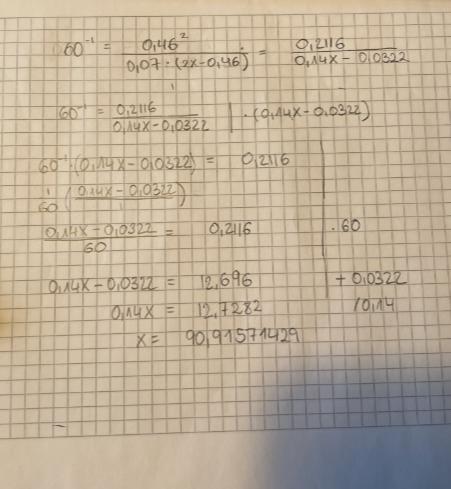 60⁻¹ = 0,46² / 0,07·(2x-0,46) = 0,2116 / 0,14x - 0,0322
60⁻¹ = 0,2116 / 0,14x-0,0322 | ·(0,14x-0,0322)
60⁻¹·(0,14x-0,0322) = 0,2116
1/60 (0,14x-0,0322 / 1)
0,14x-0,0322 / 60 = 0,2116 | ·60
0,14x-0,0322 = 12,696 | +0,0322
0,14x = 12,7282 /0,14
x = 90,91571429